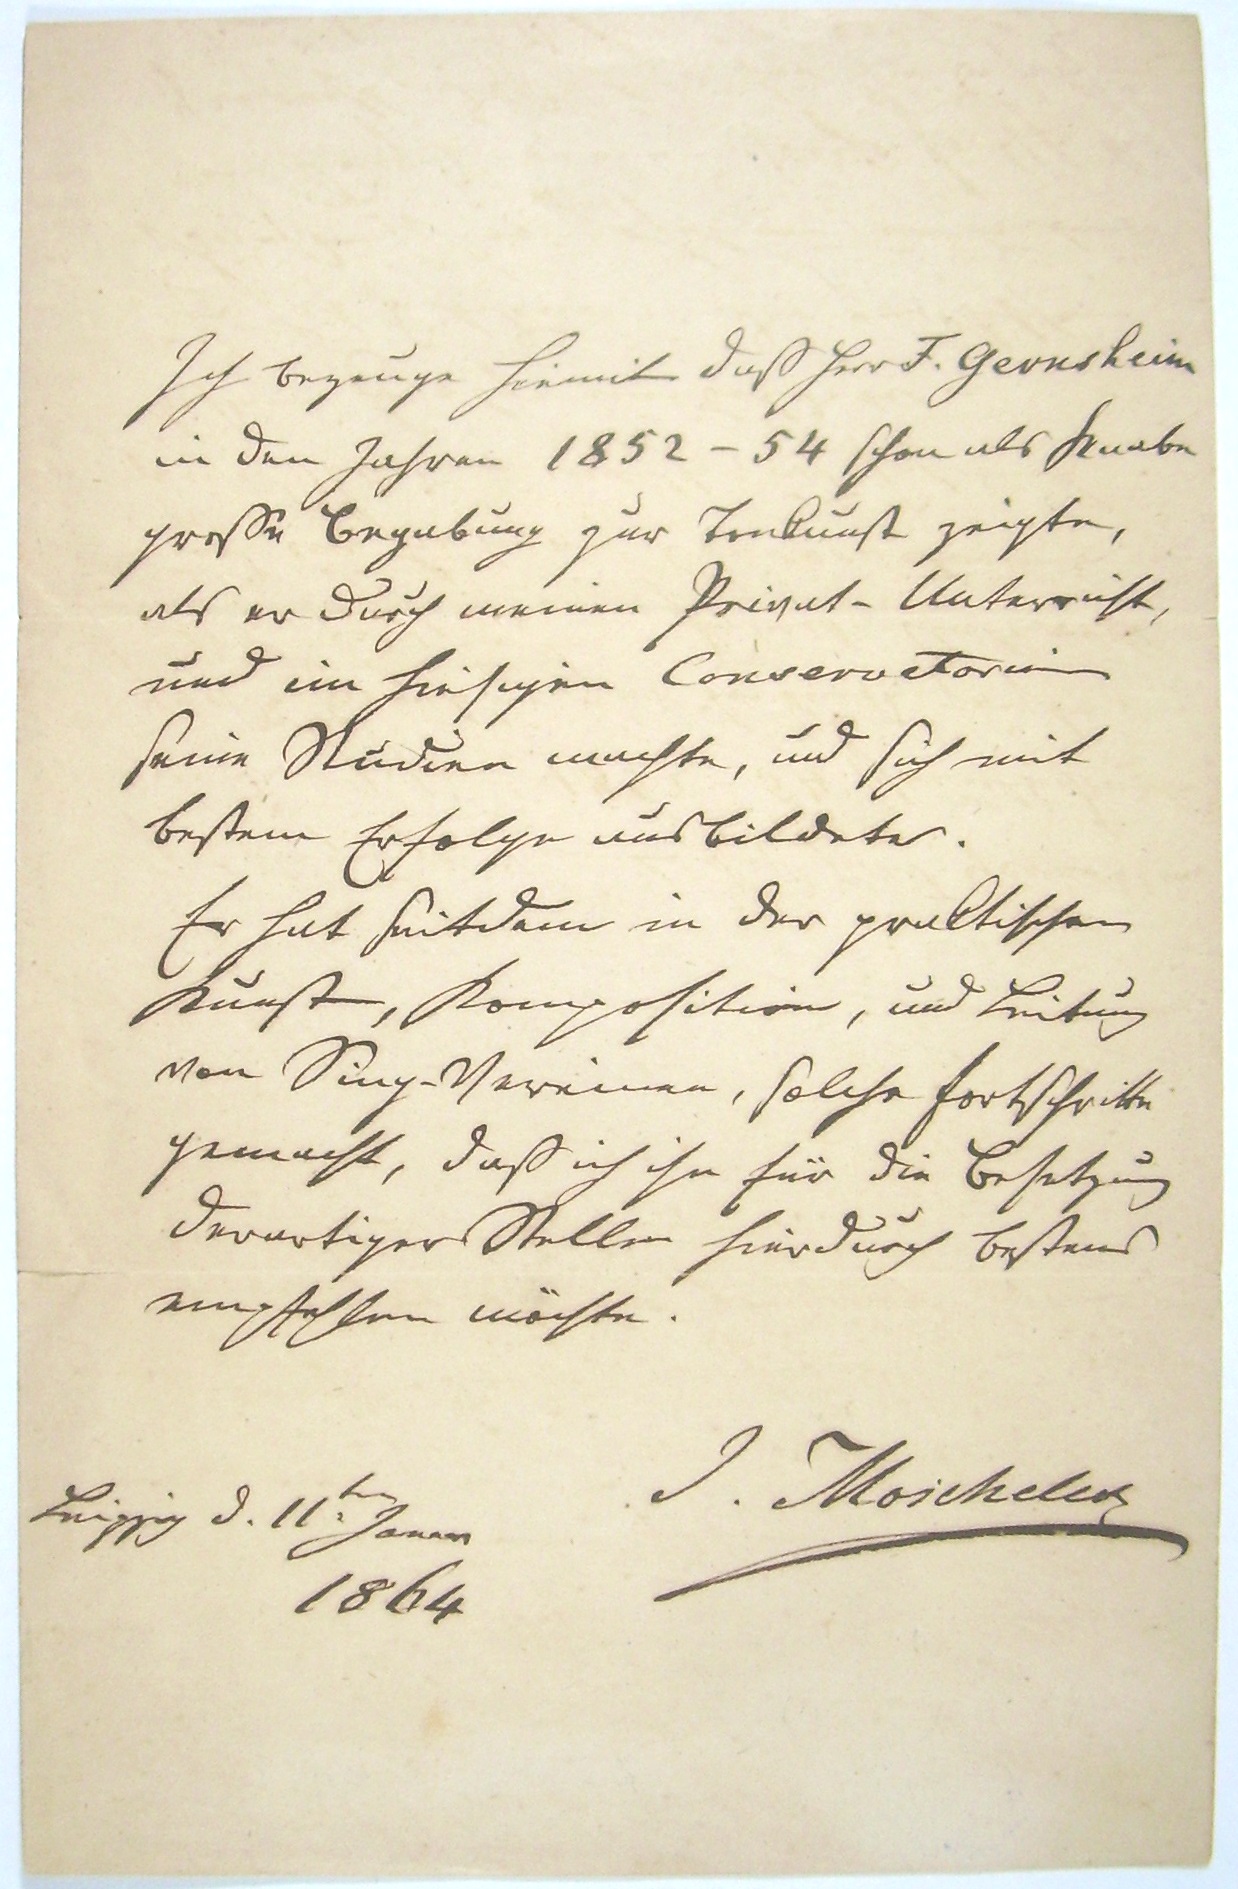 Ich bezeuge hiemit daß Herr F. Gernsheim
in den Jahren 1852 – 54 schon als Knabe
große Begabung zur Tonkunst zeigte,
als er durch meinen Privat- Unterricht,
und im hiesigen Conservatorium
seine Studien machte, und sich mit
bestem Erfolge ausbildete.
Er hat seitdem in der praktischen
Kunst, Komposition, und Leitung
von Sing-Vereinen, solche Fortschritte
gemacht, daß ich ihn für die Besetzung
derartiger Stellen hierdurch bestens
empfehlen möchte.
J. Moscheles
Leipzig d. 11ten Januar
1864